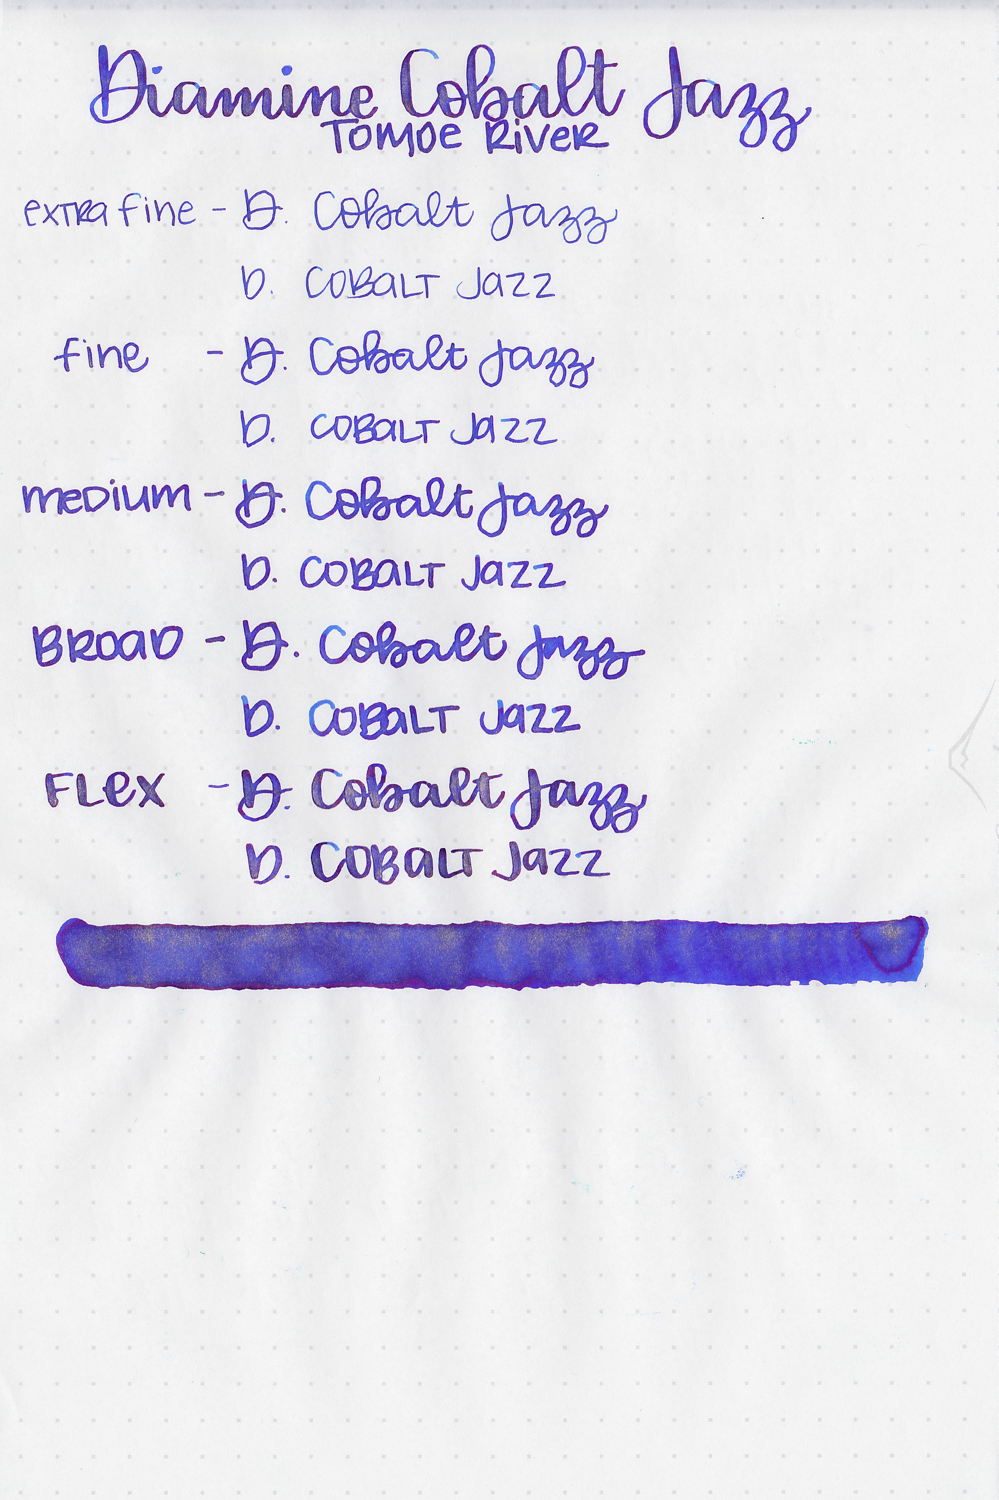 Diamine Cobalt Jazz
Tomoe River
extra fine - D. Cobalt Jazz
D. COBALT JAZZ
fine - D. Cobalt Jazz
D. COBALT JAZZ
medium - D. Cobalt Jazz
D. COBALT JAZZ
BROAD - D. Cobalt Jazz
D. COBALT JAZZ
FLex - D. Cobalt Jazz
D. COBALT JAZZ